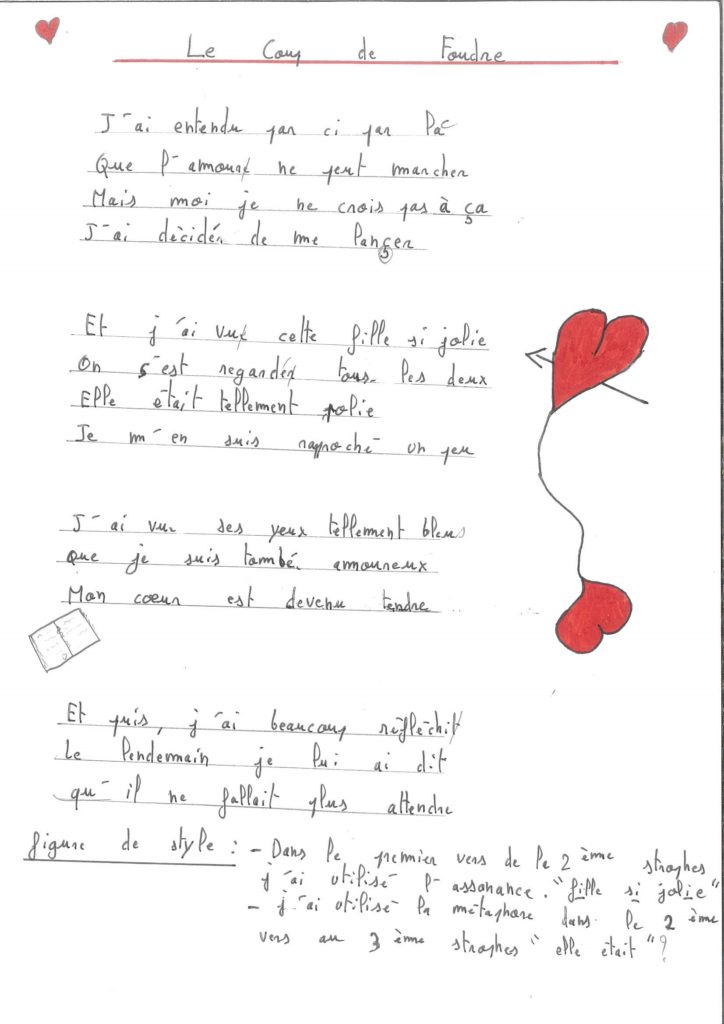 Le Coup de Foudre
J'ai entendu par ci par là
Que l'amour ne peut marcher
Mais moi je ne crois pas à ça
J'ai décidér de me lançer
Et j'ai vux cette fille si jolie
On s'est regardéx tous les deux
Elle était tellement polie
Je m'en suis rapproché un peu
J'ai vu ses yeux tellement bleus
que je suis tombé amoureux
Mon coeur est devenu tendre
Et puis, j'ai beaucoup réfléchit
Le lendemain je lui ai dit
qu'il ne fallait plus attendre
figure de style : - Dans le premier vers de le 2 ème strophes
j'ai utilisé l'assonance. "fille si jolie"
- j'ai utilisé la métaphore dans le 2 ème
vers au 3 ème strophes "elle était" ?